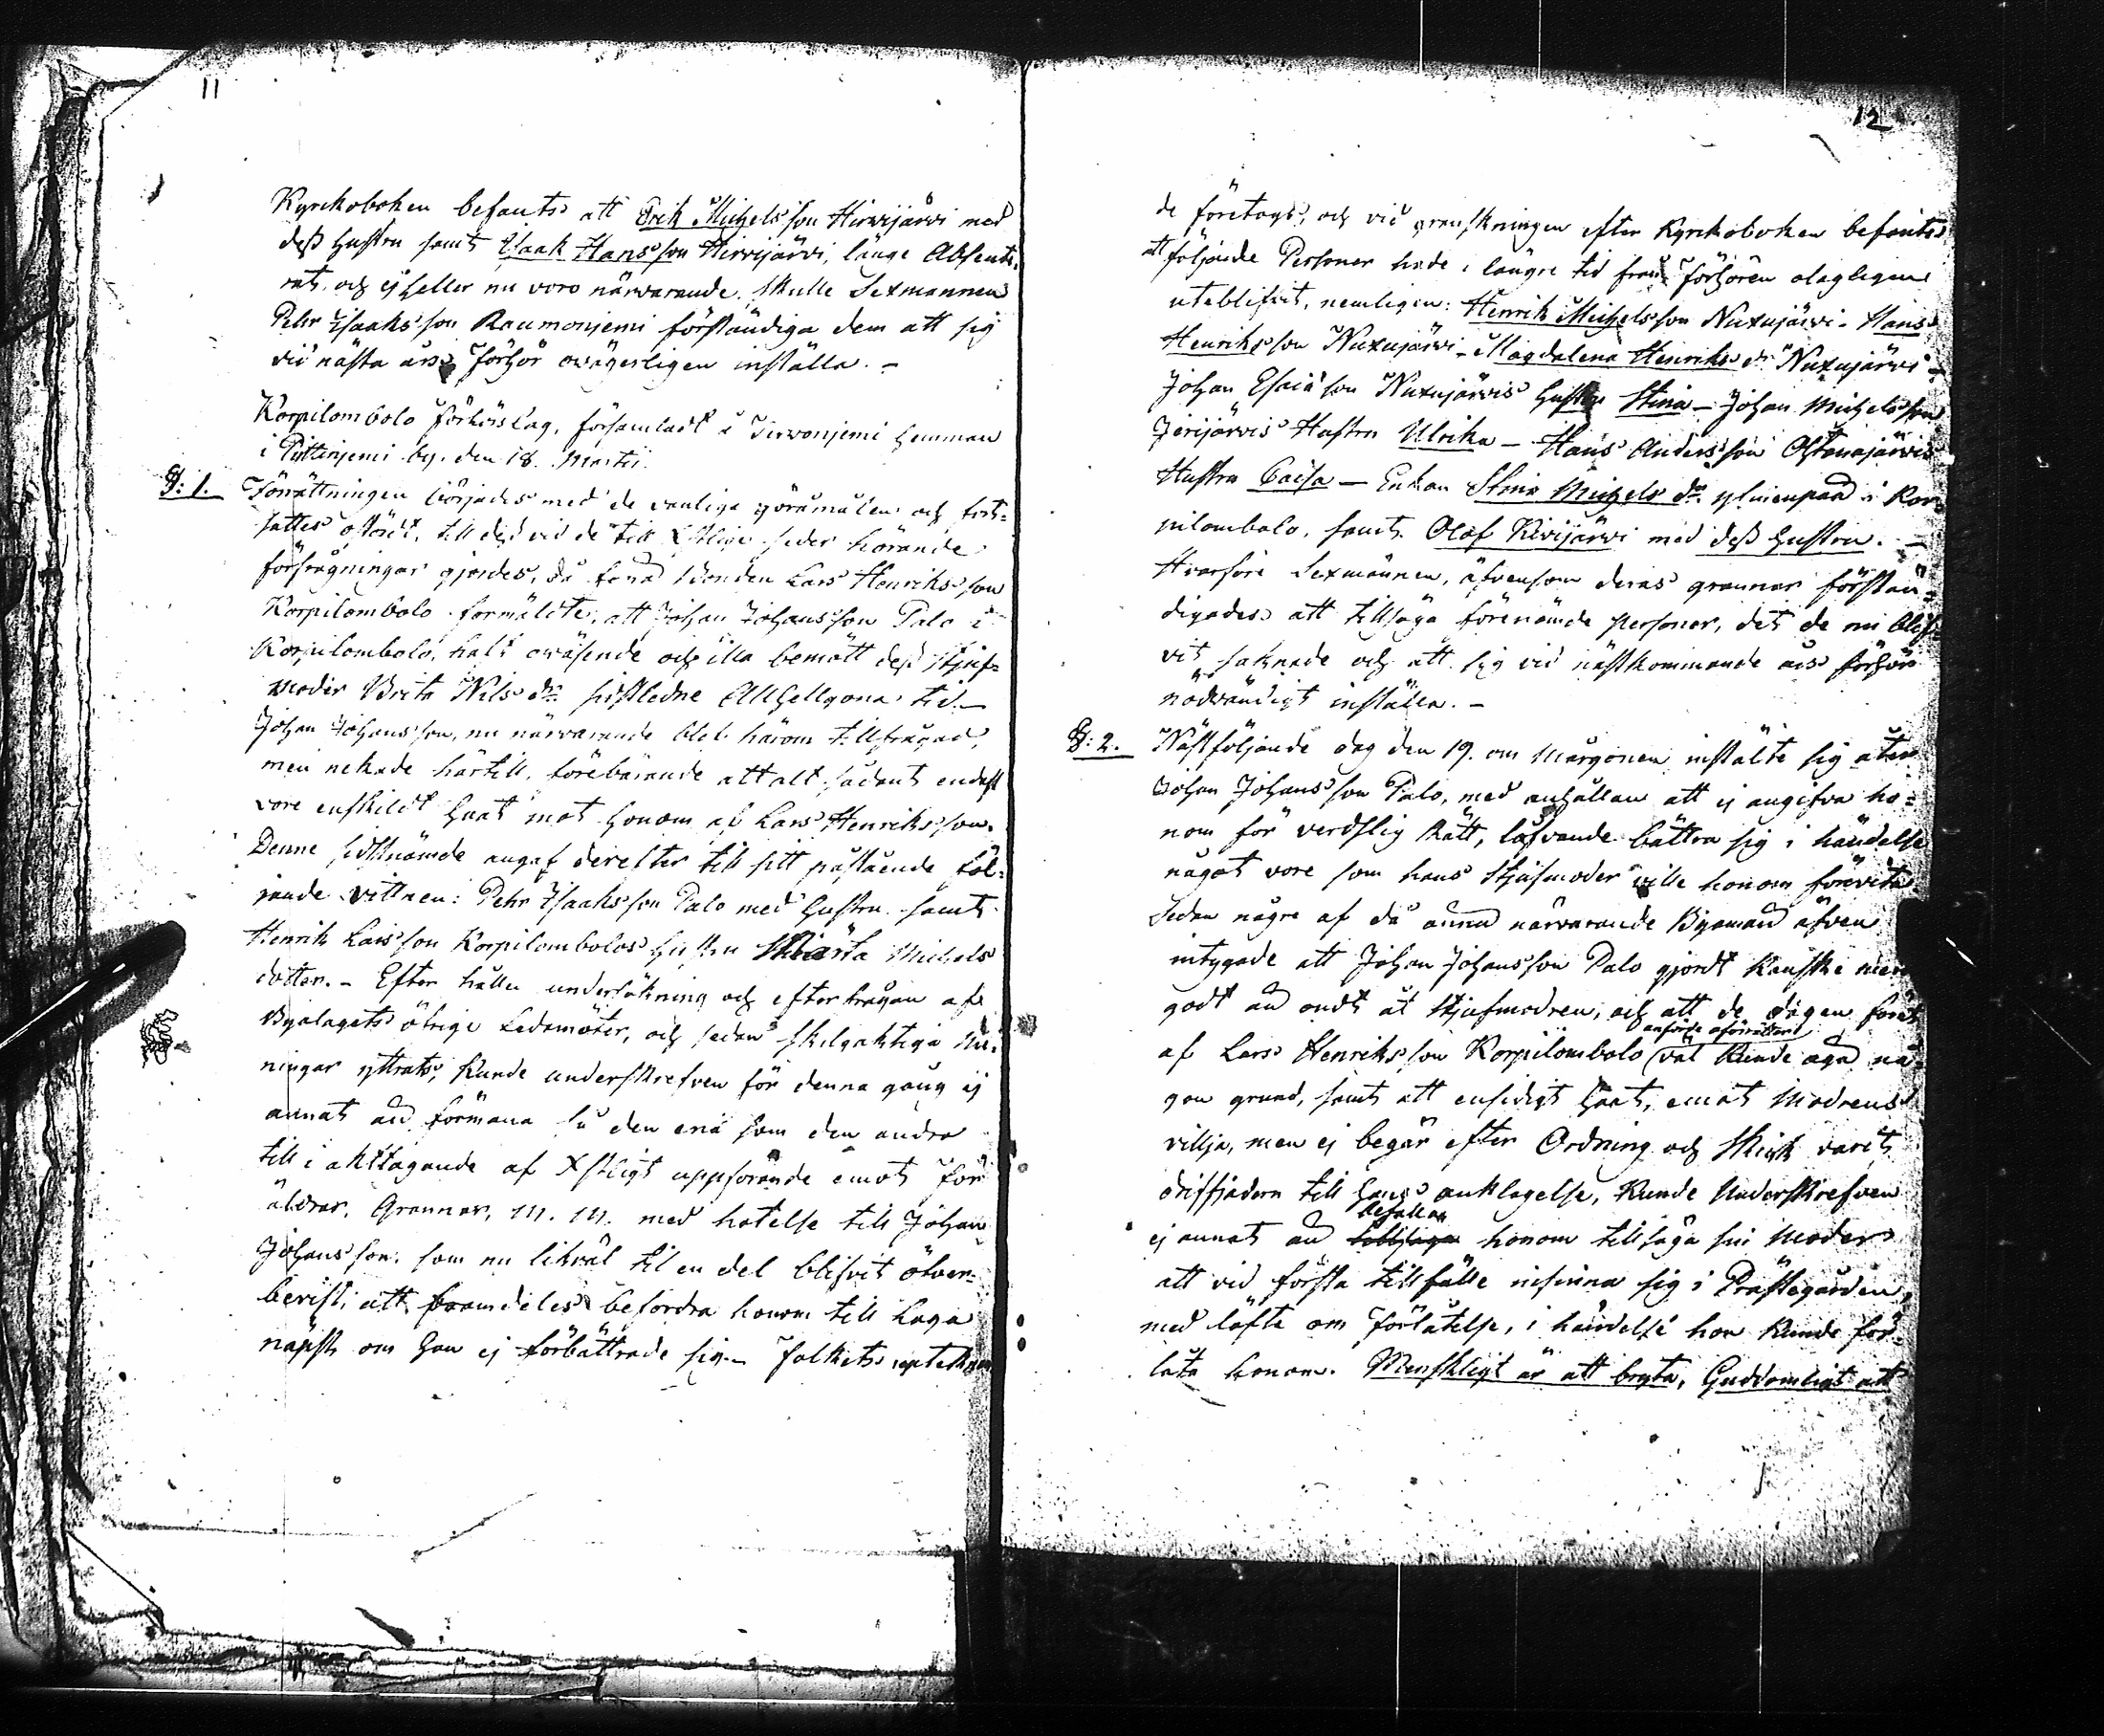 11
Kyrckoboken befants att Erik Michelsson Hirvijärvi med
dess hustru samt Isaak Hansson Hirvijärvi, länge Absente-
rat, och ej heller nu voro närvarande. Skulle Sexmannen
Pehr Isaksson Raumonjemi förständiga dem att sig
vid nästa års Förhör owägerligen inställa. –
Korpilombolo Förhörslag, församladt å Tirvonjemi hemman
i Pittinjemi by. den 18. Martii.
§: 1. Förrättningen börjades med de vanliga göramålen och fort-
sattes ostördt, till dess vid de till Xstlige seder hörande
förfrågningar gjordes, då bonden Lars Henriksson
Korpilombolo formälte, att Johan Johansson Palo i
Korpilombolo, haft owäsende och illa bemött dess stjuf-
moder Brita Nils dr sistledne Allhelgona tid. –
Johan Johansson, nu närvarande blef härom tillfrågad,
men nekade härtill, förebärande att alt sådant endast
vore enskildt hat mot honom af Lars Henriksson.
Denne sistnämde angaf derefter till sitt påstående föl-
jande vittnen: Pehr Isaaksson Palo med hustru samt
Henrik Larsson Korpilombolos hustru Märta Michels
dotter. – Efter hållen undersökning och efterfrågan af
Byalagets öfrige Ledamöter, och sedan skilgaktiga me-
ningar yttrats, kunde underskrefven för denna gång ej
annat än förmana så den ena som den andra
till i akttagande af Xstligt uppförande emot För
äldrar, Grannar, m. m. med hotelse till Johan
Johansson, som nu likväl til en del blifvit öfver-
bevist, att framdeles befordra honom till Laga
näpst om han ej förbättrade sig. – Folkets uptecknan
12
de företogs, och vid granskningen efter Kyrckoboken befants
att följande Personer hade i längre tid från Förhören olagligen
uteblifvit, nemligen: Henrik Michelsson Nuxujärvi – Hans
Henriksson Nuxujärvi – Magdalena Henriks dr Nuxujärvi –
Johan Esaiæson Nuxujärvis hustru Stina – Johan Michelsson
Jerijärvis Hustru Ulrika – Hans Andersson Ostanajärvis
Hustru Caisa – Enkan Stina Michels dr i Kor-
pilombolo, samt Olof Kivijärvi med dess hustru. –
Hvarföre Sexmännen, äfvensom deras grannar förstän-
digades att tillsäga förenämde personer, det de nu blif-
vit saknade och att sig vid nästkommande års förhör
nödvändigt inställa. –
§: 2. Nästföljande dag den 19. om Morgonen instälte sig åter
Johan Johansson Palo, med anhållan att ej angifva ho-
nom för verdslig Rätt, låfvande bättra sig i händelse
något vore som hans Stjufmoder ville honom förevita
Sedan någre af då ännu närvarande Byamän äfven
intygade att Johan Johansson Palo gjordt kanske mer
godt än ondt åt Stjufmodren, och att de dagen förut
anförde
af Lars Henriksson Korpilombolo väl kunde äga nå-
gon grund, samt att ensidigt hat, emot Modrens
villja, men ej begär efter Ordning och Skick varit
driffjädern till hans anklagelse, kunde Underskrefven
befalla
ej annat än honom tillsäga sin Moder
att vid första tillfälle infinna sig i Prästegården
med löfte om förlåtelse, i händelse hon kunde för-
låta honom. Menskligt är att bryta, Guddomligt att